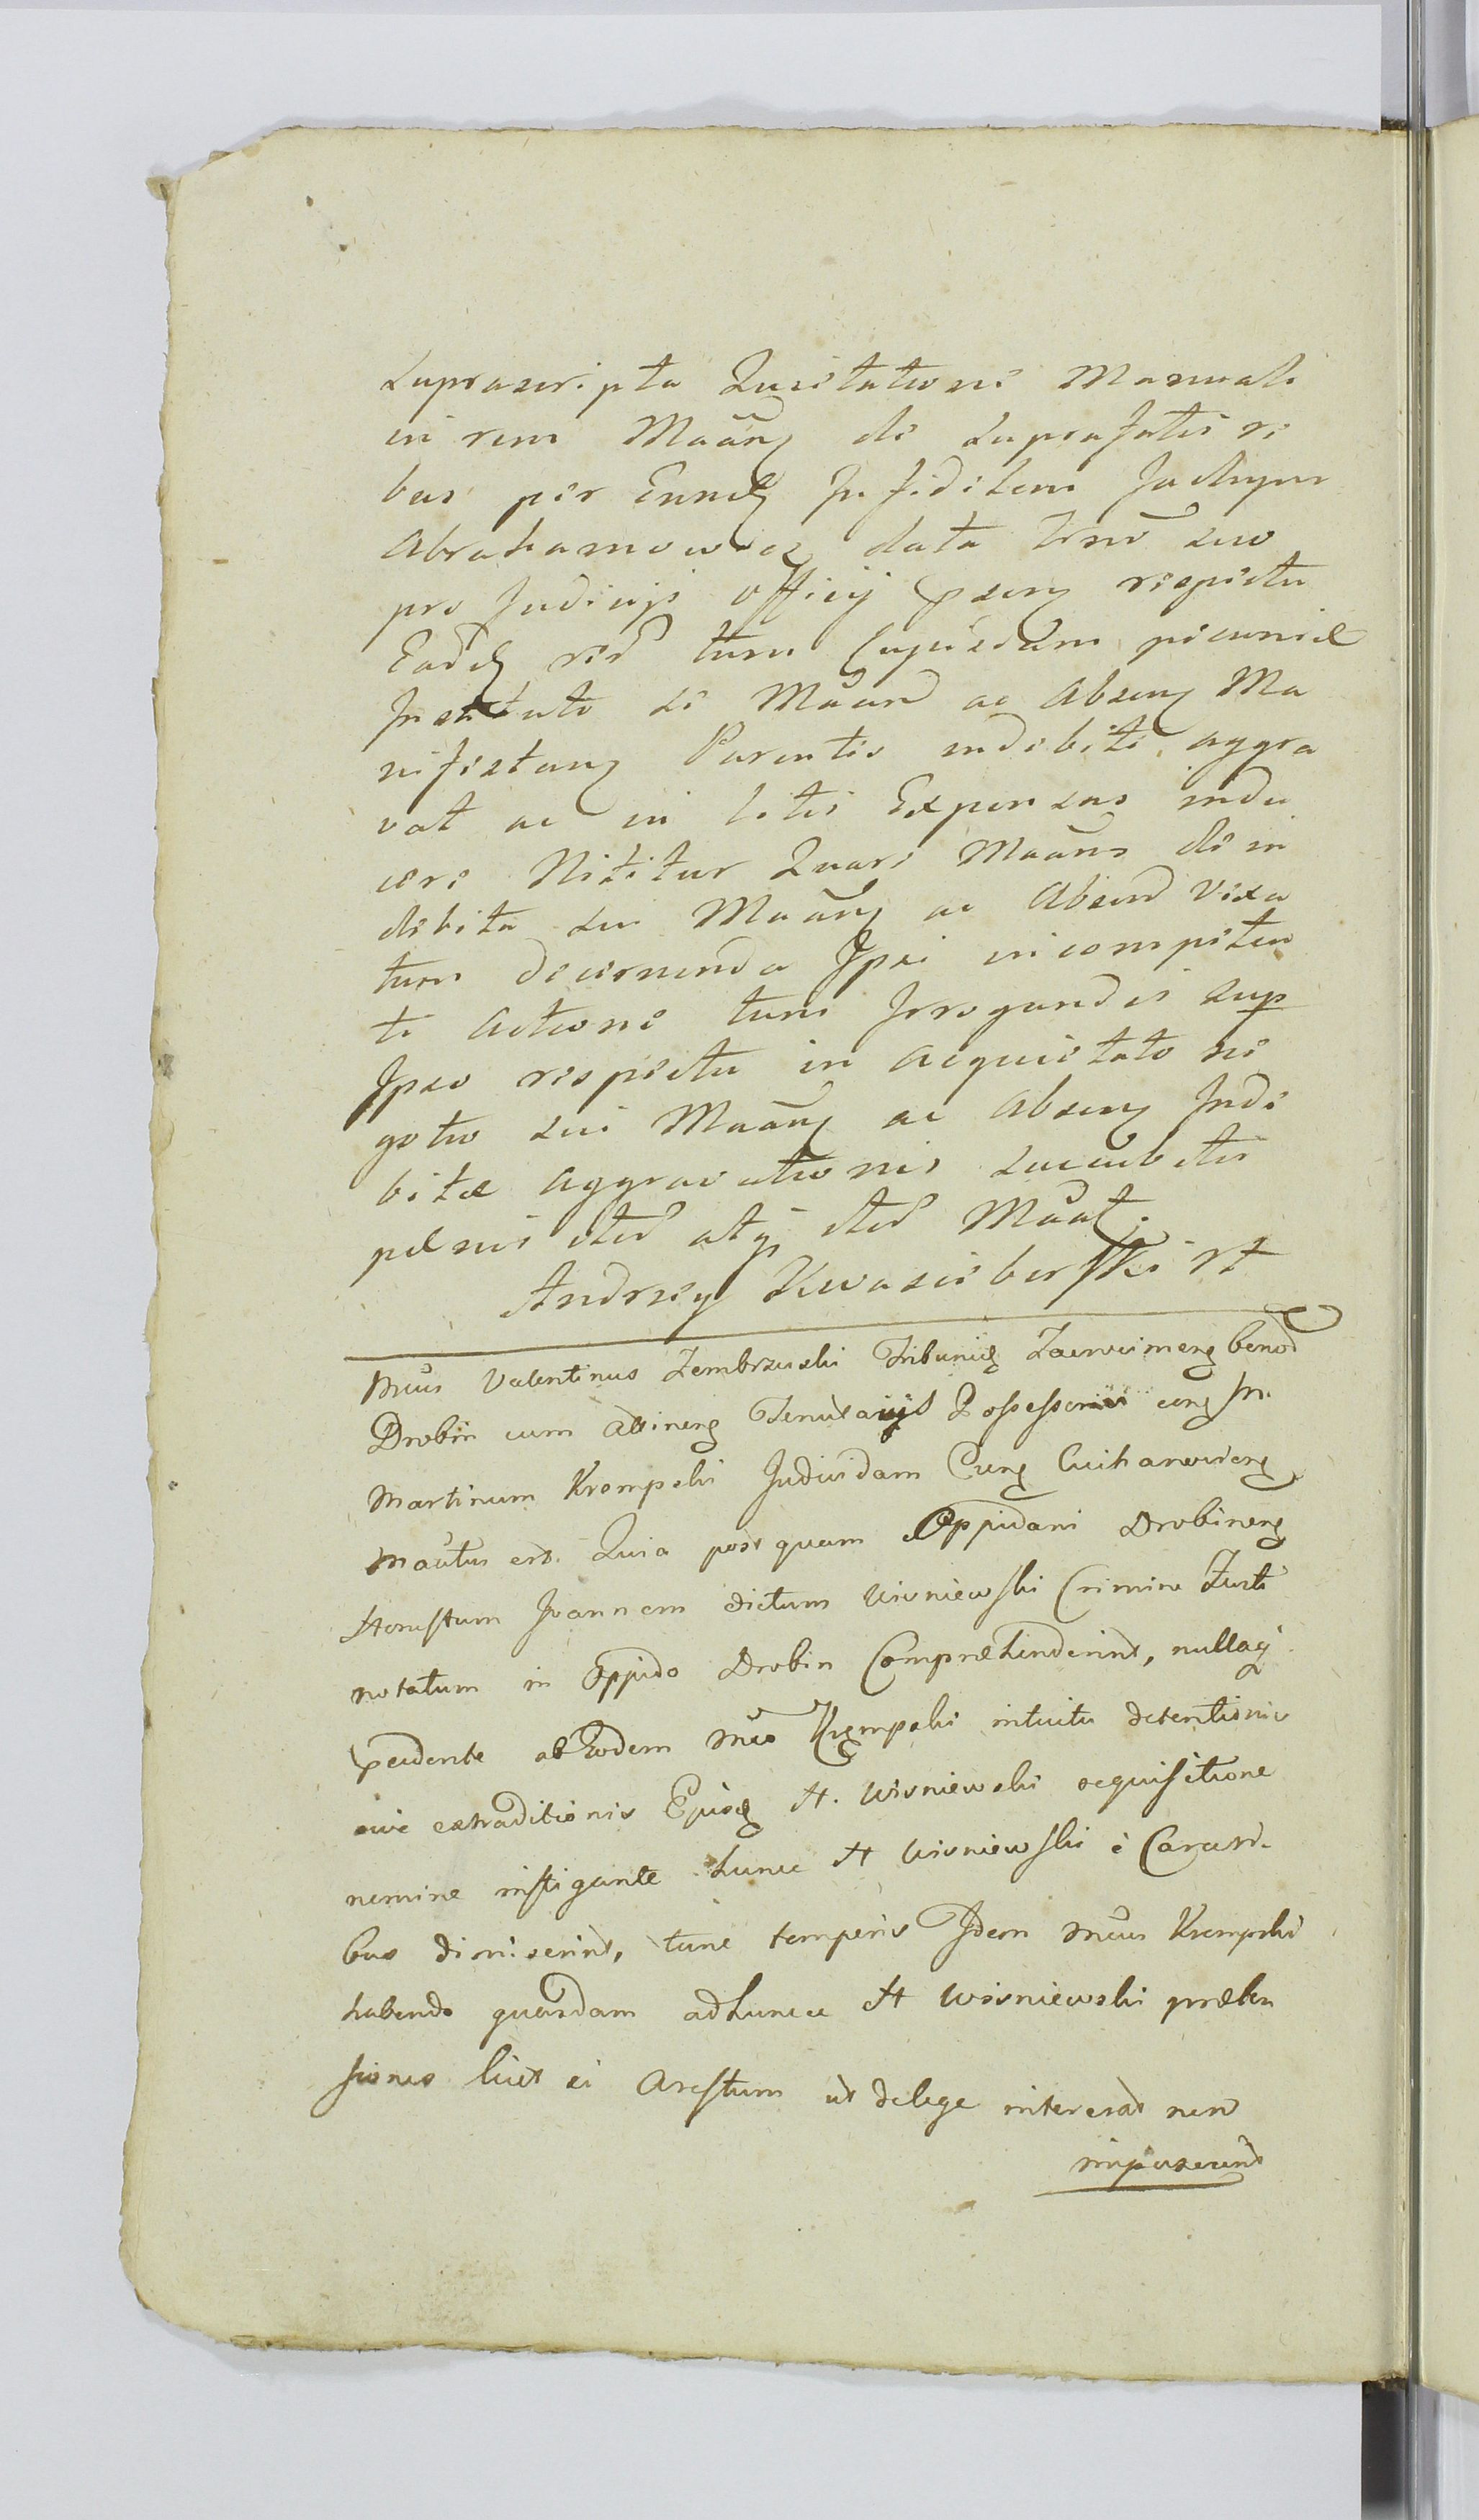 Suprascripta Quietatione Manuali
in rem Maāng de Supra fatis re
bus per Eunde Infidelem Jochym
Abrahamowicz data Trno suo
pro Judicijs Officij pseng respectu
Eade red tum Cujusdam pecuniæ
Instituto se Maand ac Abseng Ma
nifestang Parentis indebite aggra
vat ac in litis Expensas indu
cere Nititur Quare Maans de in
debita sui Maāng ac Absend Vexa
tum decernenda Ipsi incompeten
te Actione tum Irrogandis sup
Ipso respectu in acquietato ne
gotio sui Maāng ac Abseng Inde
bitæ aggravationis succubitis
pænis ited atq ited Maat.
Andrzey Kwasieborski RA
Mcus Valentinus Zembrzuski Tribunide Zacroeimeng bonod
Drobin cum Attineng Tenutarijs Possessorius cong M.
Martinum Krempski Judicidam Cung Ciechanovieng
Maatus est. Quia post quam Oppidani Drobineng
Honestum Joannem dictum Wisniewski Crimine Furti
notatum in Oppido Drobin Comprehenderint, nullaq
pcedente ab Eodem Mco Krempski intuitu detentionis
sive extraditionis Ejusde H. Wisniewski requisitione
nemine instigante hunce H Wisniewski è Carceri-
bus dimiserint, tunc temporis Idem Mcus Krempski
habendo quasdam ad hunce H Wisniewski præten
siones licet ei Arestum ut de lege intererat non
imposuerint